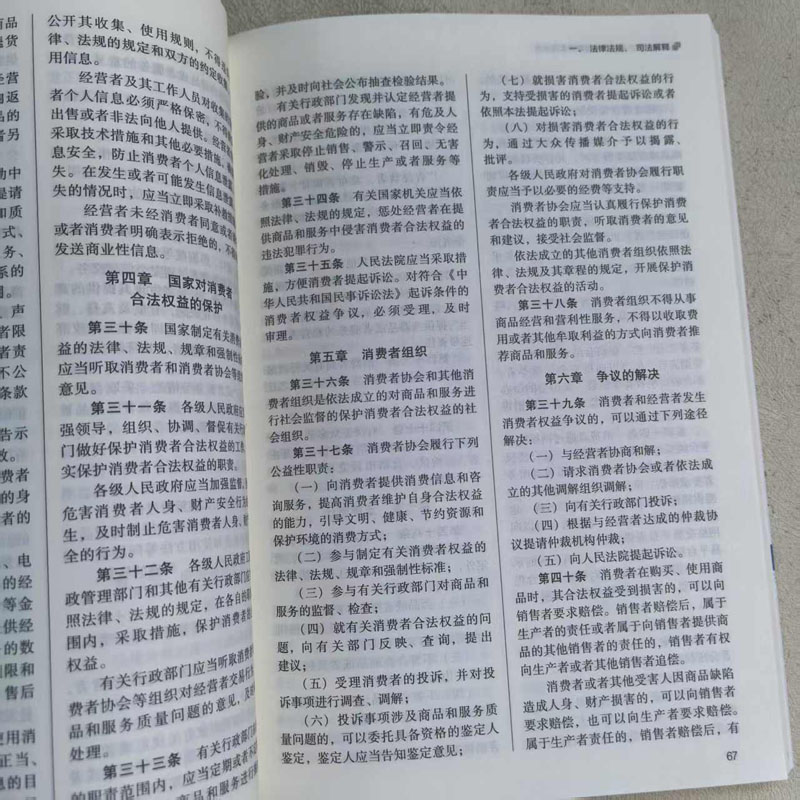 商品
售货
经营
询返
品的
者另
动中
请
和质
方式、
服务、
系的
声
者限
者责
不公
条款
告示
效。
消费者
的身
者的
、电
的经
等金
供经
务的数
期限和
售后
使用消
正当、
信息的目
公开其收集、使用规则，不得
律、法规的规定和双方的约定收
用信息。
经营者及其工作人员对收集的
者个人信息必须严格保密，不得
出售或者非法向他人提供。经营
采取技术措施和其他必要措施，确
息安全，防止消费者个人信息泄
失。在发生或者可能发生信息泄
失的情况时，应当立即采取补救
经营者未经消费者同意或者
或者消费者明确表示拒绝的，不得
发送商业性信息。
第四章 国家对消费者
合法权益的保护
第三十条 国家制定有关消费
益的法律、法规、规章和强制性
应当听取消费者和消费者协会等
意见。
第三十一条 各级人民政府应
强领导，组织、协调、督促有关行
门做好保护消费者合法权益的工
实保护消费者合法权益的职责。
各级人民政府应当加强监督，
危害消费者人身、财产安全行为
生，及时制止危害消费者人身、
全的行为。
第三十二条 各级人民政府工
政管理部门和其他有关行政部门应
照法律、法规的规定，在各自的职
围内，采取措施，保护消费者的
权益。
有关行政部门应当听取消费者
费者协会等组织对经营者交易行
品和服务质量问题的意见，及时
处理。
第三十三条 有关行政部门在
的职责范围内，应当定期或者不定
品和服务
一、法律法规、司法解释
验，并及时向社会公布抽查检验结果。
有关行政部门发现并认定经营者提
供的商品或者服务存在缺陷，有危及人
身、财产安全危险的，应当立即责令经
营者采取停止销售、警示、召回、无害
化处理、销毁、停止生产或者服务等
措施。
第三十四条 有关国家机关应当依
照法律、法规的规定，惩处经营者在提
供商品和服务中侵害消费者合法权益的
违法犯罪行为。
第三十五条 人民法院应当采取措
施，方便消费者提起诉讼。对符合《中
华人民共和国民事诉讼法》起诉条件的
消费者权益争议，必须受理，及时
审理。
第五章 消费者组织
第三十六条 消费者协会和其他消
费者组织是依法成立的对商品和服务进
行社会监督的保护消费者合法权益的社
会组织。
第三十七条 消费者协会履行下列
公益性职责：
（一）向消费者提供消费信息和咨
询服务，提高消费者维护自身合法权益
的能力，引导文明、健康、节约资源和
保护环境的消费方式；
（二）参与制定有关消费者权益的
法律、法规、规章和强制性标准；
（三）参与有关行政部门对商品和
服务的监督、检查；
（四）就有关消费者合法权益的问
题，向有关部门反映、查询，提出
建议；
（五）受理消费者的投诉，并对投
诉事项进行调查、调解；
（六）投诉事项涉及商品和服务质
量问题的，可以委托具备资格的鉴定人
鉴定，鉴定人应当告知鉴定意见；
（七）就损害消费者合法权益的行
为，支持受损害的消费者提起诉讼或者
依照本法提起诉讼；
（八）对损害消费者合法权益的行
为，通过大众传播媒介予以揭露、
批评。
各级人民政府对消费者协会履行职
责应当予以必要的经费等支持。
消费者协会应当认真履行保护消费
者合法权益的职责，听取消费者的意见
和建议，接受社会监督。
依法成立的其他消费者组织依照法
律、法规及其章程的规定，开展保护消
费者合法权益的活动。
第三十八条 消费者组织不得从事
商品经营和营利性服务，不得以收取费
用或者其他牟取利益的方式向消费者推
荐商品和服务。
第六章 争议的解决
第三十九条 消费者和经营者发生
消费者权益争议的，可以通过下列途径
解决：
（一）与经营者协商和解；
（二）请求消费者协会或者依法成
立的其他调解组织调解；
（三）向有关行政部门投诉；
（四）根据与经营者达成的仲裁协
议提请仲裁机构仲裁；
（五）向人民法院提起诉讼。
第四十条 消费者在购买、使用商
品时，其合法权益受到损害的，可以向
销售者要求赔偿。销售者赔偿后，属于
生产者的责任或者属于向销售者提供商
品的其他销售者的责任的，销售者有权
向生产者或者其他销售者追偿。
消费者或者其他受害人因商品缺陷
造成人身、财产损害的，可以向销售者
要求赔偿，也可以向生产者要求赔偿。
属于生产者责任的，销售者赔偿后，有
67